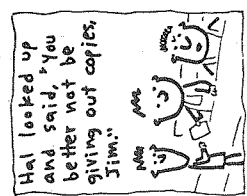 Hal looked up
and said, "You
better not be
giving out copies,
Jim."